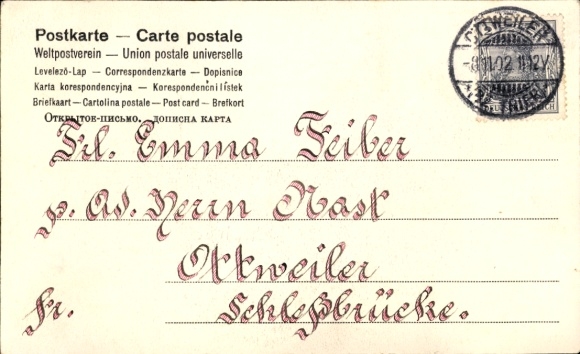 Postkarte — Carte postale
Weltpostverein — Union postale universelle
Levelező-Lap — Correspondenzkarte — Dopisnice
Karta korespondencyjna — Korespondenčni lístek
Briefkaart — Cartolina postale — Post card — Brefkort
Открытое-письмо. дописна карта
OTTWEILER
-8.11.02 11-12V.
(BZ. TRIER)
Frl. Emma Feiber
p. Ad. Herrn Mast
Ottweiler
Fr. Schloßbrücke.